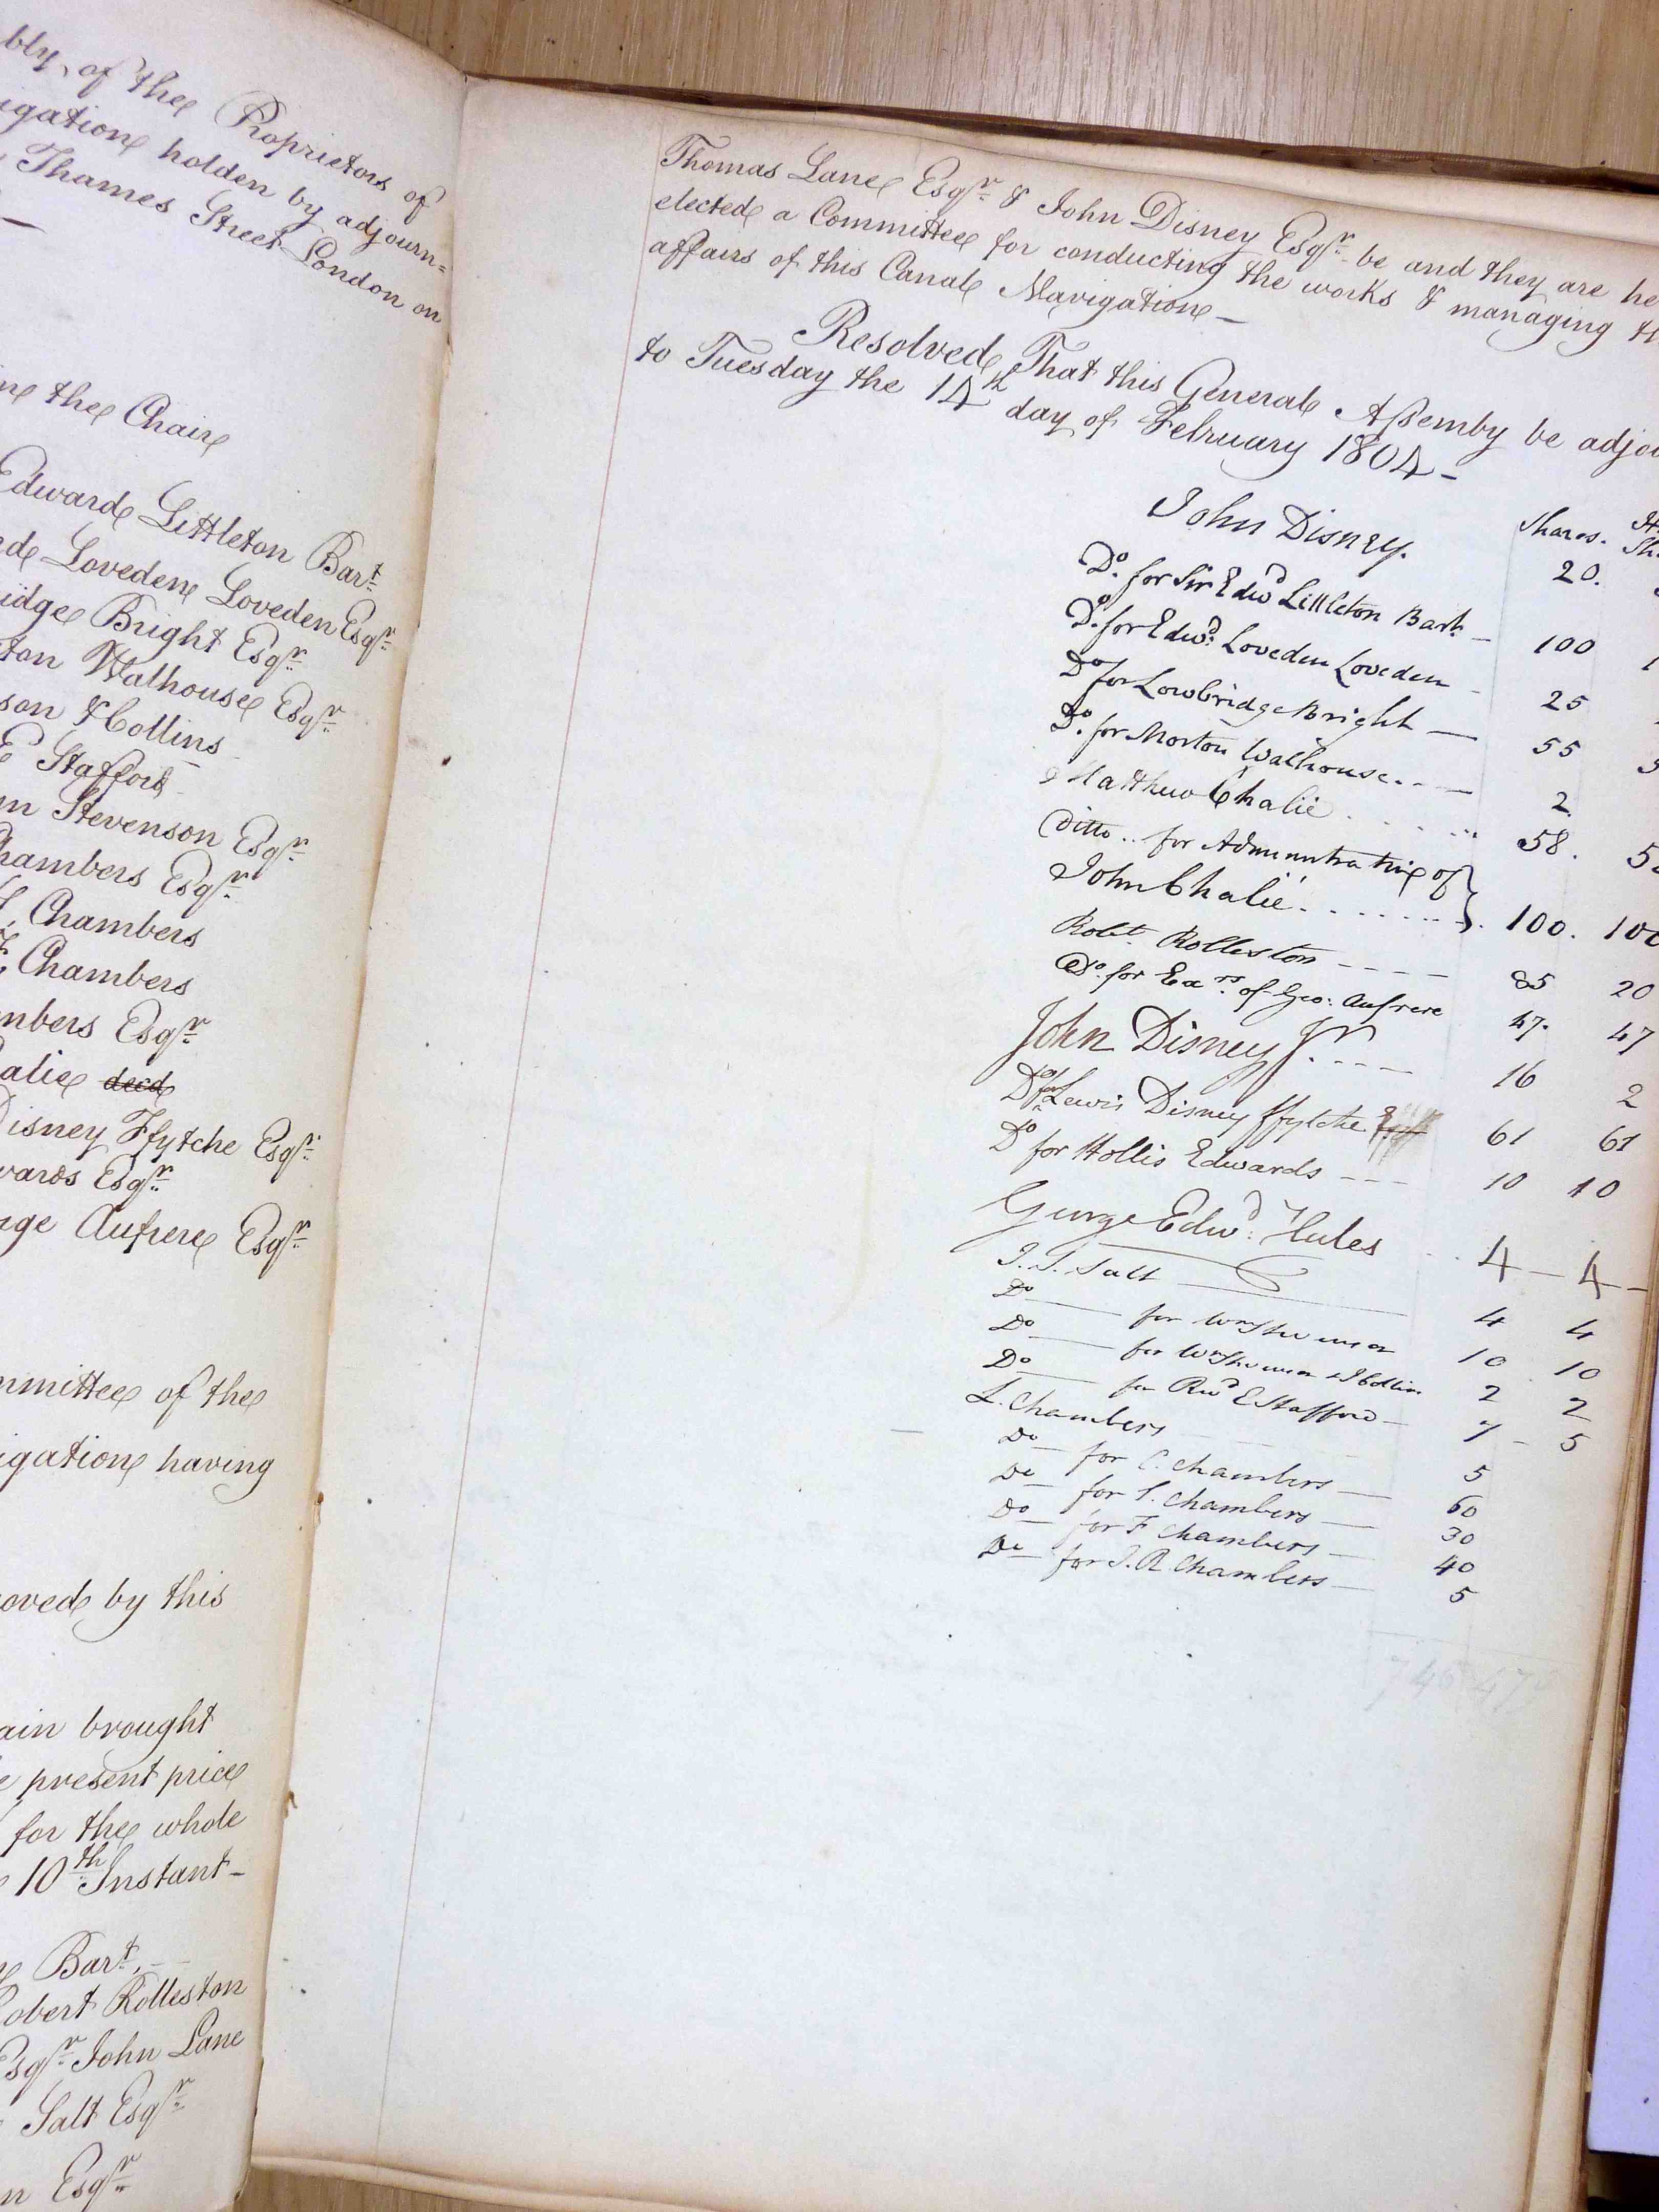 bly of the Proprietors of
igation holden by adjourn=
Thames Street London on
in the Chair
Edward Littleton Bart
Loveden Loveden Esqr
idge Bright Esqr
ton Walhouse Esqr
son & Collins
E Stafford
m Stevenson Esqr
hambers Esqr
Chambers
Chambers
mbers Esqr
alie decd
Disney Ffytche Esqr
wards Esqr
rge Aufrere Esqr
mmittee of the
igation having
oved by this
ain brought
e present price
for the whole
10th Instant -
Bart. -
obert Rolleston
Esqr John Lane
Salt Esqr
n Esqr
Thomas Lane Esqr & John Disney Esqr be and they are he
elected a Committee for conducting the works & managing th
affairs of this Canal Navigation -
Resolved That this General Assemby be adjou
to Tuesday the 14th day of February 1804 -
Shares.
John Disney. 20.
Do. for Sir Edwd Littleton Bart - 100 1
Do. for Edwd: Loveden Loveden - 25
Do for Lowbridge Bright — 55 5
Do. for Morton Walhouse. - - — 2.
Matthew Chalié . . . . . . 58. 5
Ditto .. for Administratrix of }
John Chalié . . . . . . . } 100. 100
Robt. Rolleston - - - - 85 20
Do. for Exrs. of Geo: Aufrere 47. 47
John Disney Jr. - - - - 16 2
Do for Lewis Disney ffytche 61 61
Do for Hollis Edwards - - - 10 10
George Edwd: Hules . . 4 - 4 -
J. S. Salt — 4 4
Do — for 10 10
Do — for 2 2
Do — for Revd E Stafford - 7 - 5
L. Chambers 5
Do — for C. Chambers — 60
Do — for S. Chambers — 30
Do — for F Chambers — 40
Do — for J. R Chambers — 5
746 47